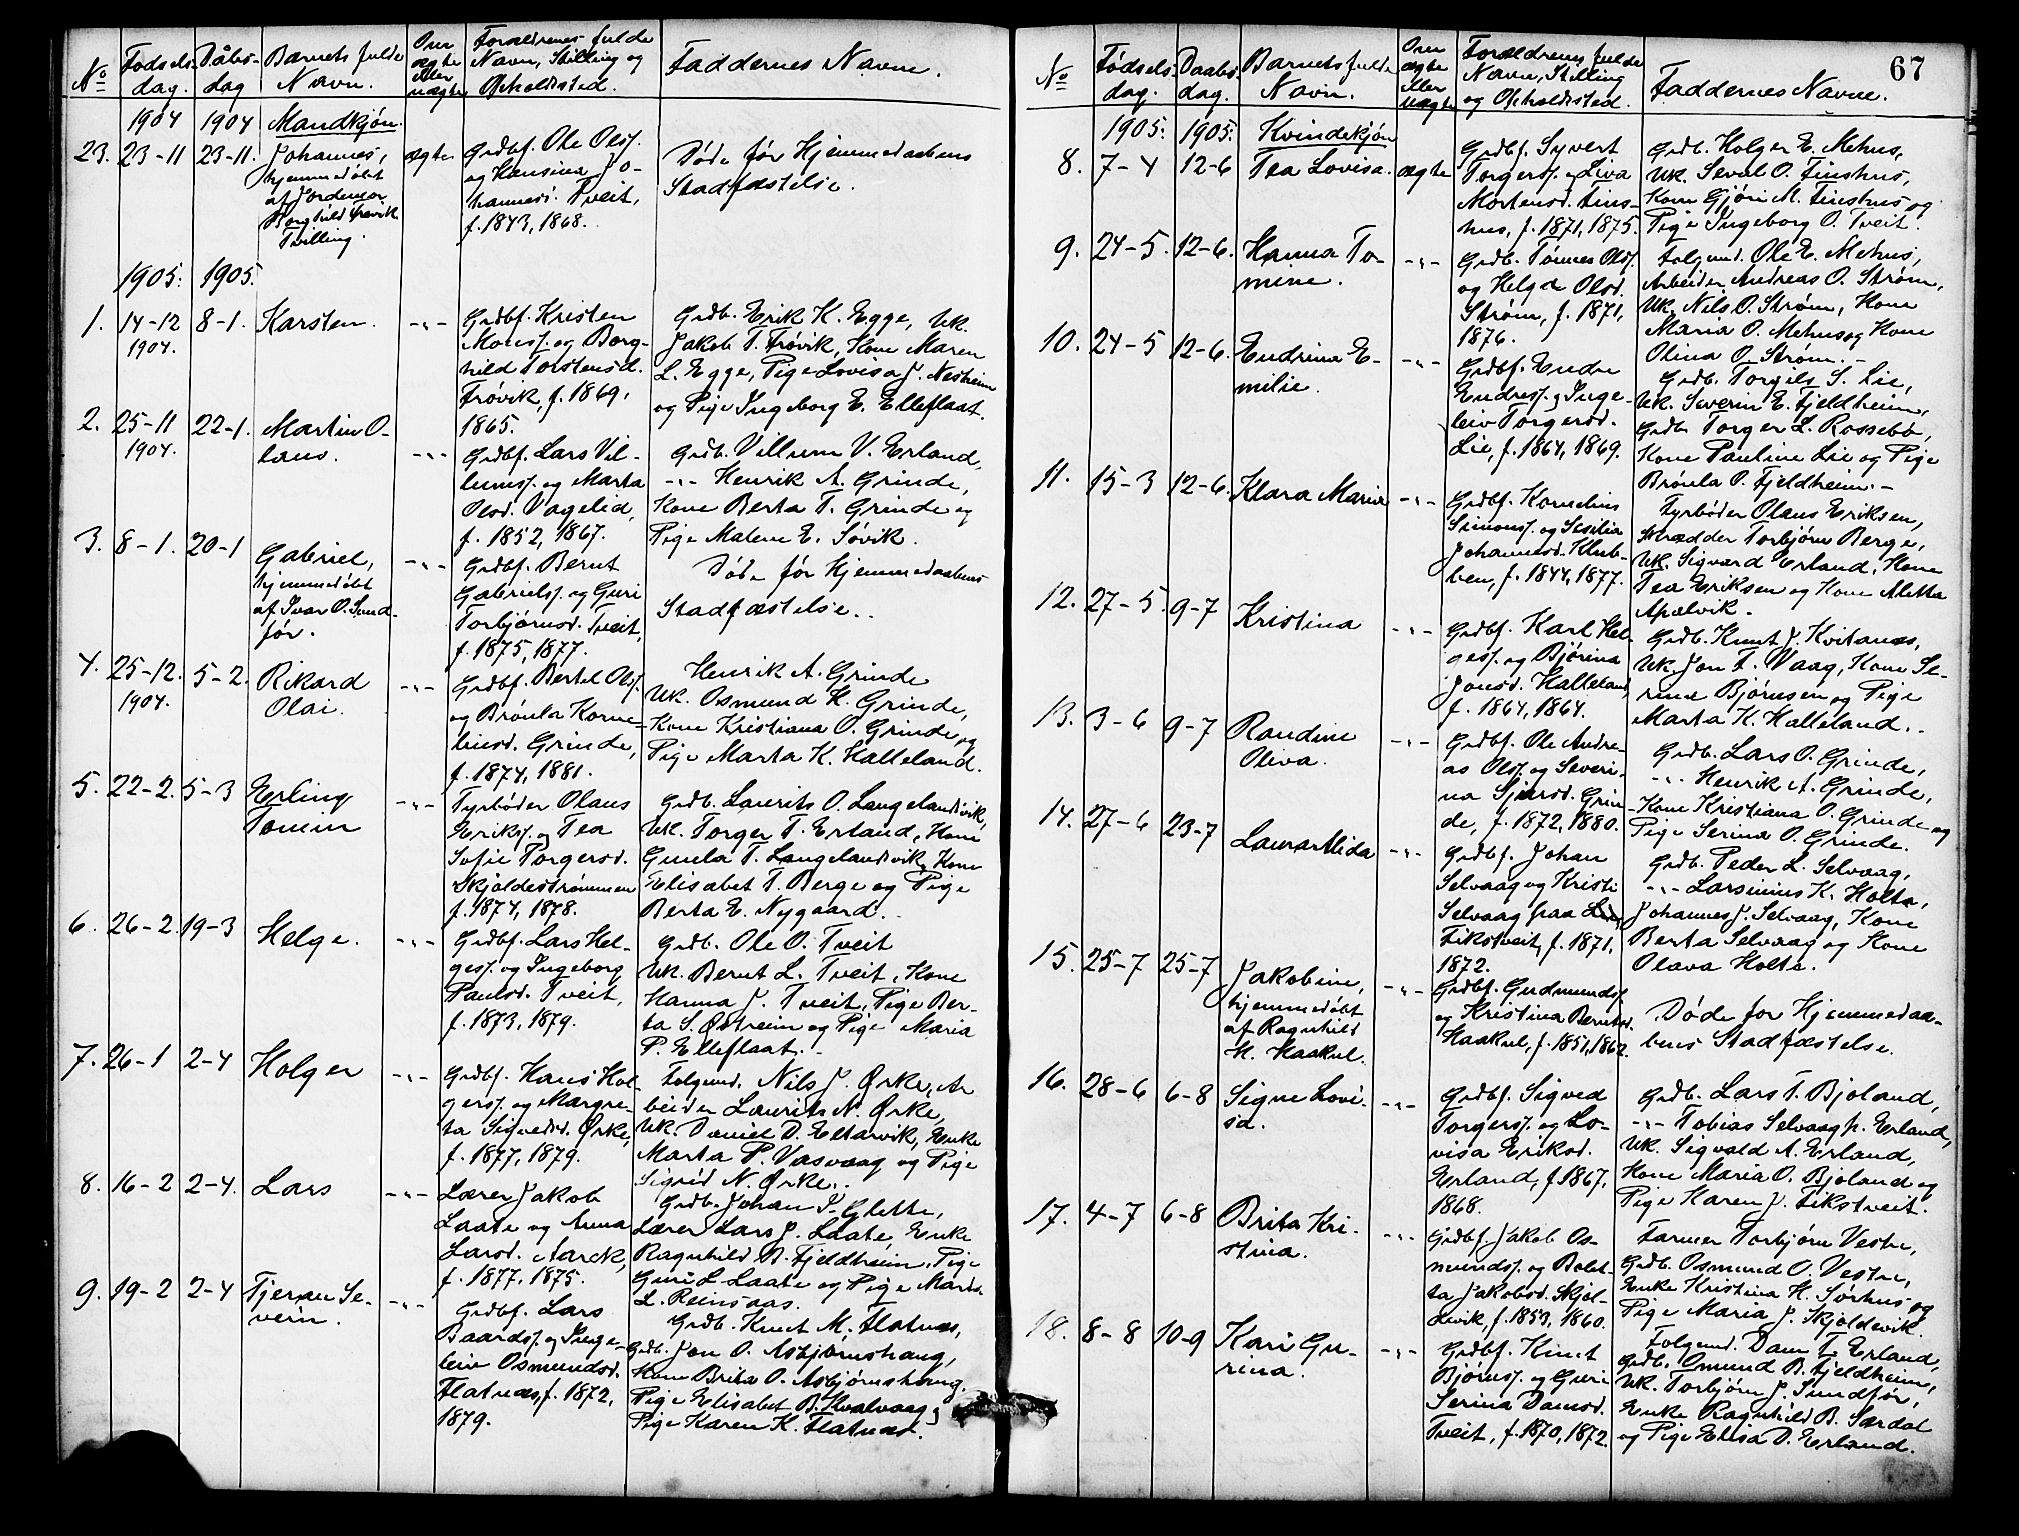 No
Fødsels-
dag.
Dåbs-
dag
Barnets fulde
Navn.
Om
ægte
eller
uægte
Forældrenes fulde
Navn, Stilling og
Opholdssted.
Faddernes Navne.
1904 1904 Mandkjøn.
23. 23-11 23-11.
Johannes,
hjemmedøbt
af Jordemor
Borghild Frøvik
Tvilling.
ægte
Grdbf. Ole Ols.
og Hansina Jo-
hannesd. Tveit,
f. 1843, 1868.
Døde før Hjemmedaabens
Stadfæstelse.
1905. 1905.
1. 14-12
1904.
8-1. Karsten. -"-
Grdbf. Kristen
Monss. og Borg-
hild Torstensd.
Frøvik, f. 1869,
1865.
Grdb. Erik K. Egge, Uk.
Jakob T. Frøvik, Kone Maren
L. Egge, Pige Lovisa J. Nesheim
og Pige Ingeborg E. Elleflaat.
2. 25-11
1904.
22-1.
Martin O-
laus.
-"-
Grdbf. Lars Vil-
lumss. og Marta
Olsd. Vagelid,
f. 1852, 1867.
Grdb. Villum V. Erland,
-"- Henrik A. Grinde,
Kone Berta T. Grinde og
Pige Malene E. Søvik.
3. 8-1. 20-1
Gabriel,
hjemmedøbt
af Ivar O. Sund-
før.
-"-
Grdbf. Bernt
Gabrielss. og Guri
Torbjørnsd. Tveit,
f. 1875, 1877.
Døde før Hjemmedaabens
Stadfæstelse.
4. 25-12.
1904.
5-2.
Rikard
Olai.
-"-
Grdbf. Bertel Ols.
og Brønla Korne-
liusd. Grinde,
f. 1874, 1881.
Henrik A. Grinde
Uk. Osmund H. Grinde,
Kone Kristiana O. Grinde og
Pige Marta K. Halleland.
5. 22-2. 5-3
Erling
Tomin
-"-
Fyrbøder Olaus
Erikss. og Tea
Sofie Torgersd.
Skjoldestrømmen
f. 1874, 1878.
Grdb. Laurits O. Langelandsvik,
Uk. Torger T. Erland, Kone
Gunla T. Langelandsvik, Kone
Elisabet T. Berge og Pige
Berta E. Nygaard.
6. 26-2. 19-3
Helge.
-"-
Grdbf. Lars Hel-
gess. og Ingeborg
Paulsd. Tveit,
f. 1873, 1879.
Grdb. Ole O. Tveit
Uk. Bernt L. Tveit, Kone
Hanna J. Tveit, Pige Ber-
ta S. Østreim og Pige Maria
P. Elleflaat.
7. 26-1 2-4
Holger
-"-
Grdbf. Hans Hol-
gerss. og Margre-
ta Sigvedsd. Ørke,
f. 1877, 1879.
Folgmd. Nils J. Ørke, Ar-
beider Laurits N. Ørke,
Uk. Daniel D. Eltarvik, Enke
Marta P. Vasvaag og Pige
Sigrid N. Ørke.
8. 16-2 2-4.
Lars
-"-
Lærer Jakob
Laate og Anna
Larsd. Aarek,
f. 1877, 1875.
Grdb. Johan P. Glette,
Lærer Lars J. Laate, Enke
Ragnhild B. Fjeldheim, Pige
Guri L. Laate og Pige Marta
L. Reinsaas.
9. 19-2 2-4
Tjeran Se-
verin.
-"-
Grdbf. Lars
Baardss. og Inge-
leiv Osmundsd.
Flatnæs, f. 1872,
1879.
Grdb. Knut M. Flatnæs,
Grdb. Jon O. Asbjørnshaug,
Kone Brita O. Asbjørnshaug.
Pige Elisabet B. Kvalvaag,
Pige Karen K. Flatnæs.
67
No
Fødsels-
dag.
Daabs-
dag.
Barnets fulde
Navn.
Om
ægte
eller
uægte
Forældrenes fulde
Navn, Stilling
og Opholdssted.
Faddernes Navne.
1905. 1905. Kvindekjøn
8. 7-4 12-6
Tea Lovisa. ægte
Grdbf. Syvert
Torgerss. og Liva
Mortensd. Fins-
hus, f. 1871, 1875.
Grdb. Holger E. Mehus,
Uk. Seval O. Finshus,
Kone Gjøri M. Finshus og
Pige Ingeborg O. Tveit.
9. 24-5. 12-6.
Hanna To-
mine.
-"-
Grdb. Tønnes Ols.
og Helga Olsd.
Strøm, f. 1871,
1876.
Folgmd. Ole E. Mehus,
Arbeider Andreas O. Strøm,
Uk. Nils O. Strøm, Kone
Maria O. Mehus og Kone
Olina O. Strøm.
10. 24-5 12-6.
Endrina E-
milie.
-"-
Grdbf. Endre
Endress. og Inge-
leiv Torgersd.
Lie, f. 1864, 1869.
Grdb. Torgils S. Lie,
Uk. Severin E. Fjeldheim,
Grdb. Torger L. Rossebø,
Kone Pauline Lie og Pige
Brønla O. Fjeldheim.
11. 15-3 12-6.
Klara Marie
-"-
Grdbf. Kornelius
Simonss. og Sesilia
Johannesd. Klub-
ben, f. 1844, 1877.
Fyrbøder Olaus Eriksen,
Skrædder Torbjørn Berge,
Uk. Sigvard Erland, Kone
Tea Eriksen og Kone Aletta
Apalvik.
12. 27-5. 9-7
Kristina
-"-
Grdbf. Karl Hel-
gess. og Bjørina
Jonsd. Halleland
f. 1864, 1864.
Grdb. Knut J. Kvitanæs,
Uk. Jon T. Vaag, Kone Se-
rina Bjørnsen og Pige
Marta K. Halleland.
13. 3-6 9-7
Randine
Oliva.
-"-
Grdbf. Ole Andre-
as Ols. og Severi-
na Sjursd. Grin-
de, f. 1872, 1880.
Grdb. Lars O. Grinde,
-"- Henrik A. Grinde,
Kone Kristiana O. Grinde og
Pige Serina O. Grinde.
14. 27-6 23-7
Laura Alida
-"-
Grdbf. Johan
Selvaag og Kristi
Selvaag paa Lid,
Fikstveit, f. 1871,
1872.
Grdb. Peder L. Selvaag,
-"- Larsinius K. Holta,
Johannes J. Selvaag, Kone
Berta Selvaag og Kone
Olava Holta.
15. 25-7 25-7
Jakobine,
hjemmedøbt
af Ragnhild
H. Haakul.
-"-
Grdbf. Gudmunds.
og Kristina Berntsd.
Haakul, f. 1851, 1862.
Døde før Hjemmedaa-
bens Stadfæstelse.
16. 28-6 6-8
Signe Lovi-
sa.
-"-
Grdbf. Sigved
Torgerss. og Lo-
visa Eriksd.
Erland, f. 1867,
1868.
Grdb. Lars T. Bjoland,
-"- Tobias Selvaag p. Erland,
Uk. Sigvald A. Erland,
Kone Maria O. Bjoland og
Pige Karen J. Fikstveit.
17. 4-7 6-8
Brita Kri-
stina.
-"-
Grdbf. Jakob Os-
mundss. og Bolet-
ta Jakobsd. Skjol-
devik, f. 1853, 1860.
Farmer Torbjørn Vestre,
Grdb. Osmund O. Vestre,
Enke Kristina H. Sørhus og
Pige Maria J. Skjoldevik.
18. 8-8 10-9
Kari Gu-
rina.
-"-
Grdbf. Knut
Bjørnss. og Guri
Serina Damsd.
Tveit, f. 1870, 1872.
Folgmd. Dam T. Erland,
Grdb. Osmund B. Fjeldheim,
Uk. Torbjørn J. Sundfør,
Enke Ragnhild B. Særdal
og Pige Elisa D. Erland.